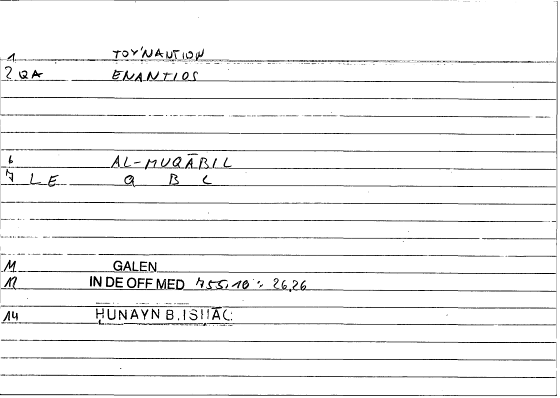 1 TOY'NANTION
2 QA ENANTIOS
6 AL-MUQĀBIL
7 LE Q B L
11 GALEN
12 IN DE OFF MED 755,10 : 26,26
14 ḤUNAYN B. ISḤĀQ